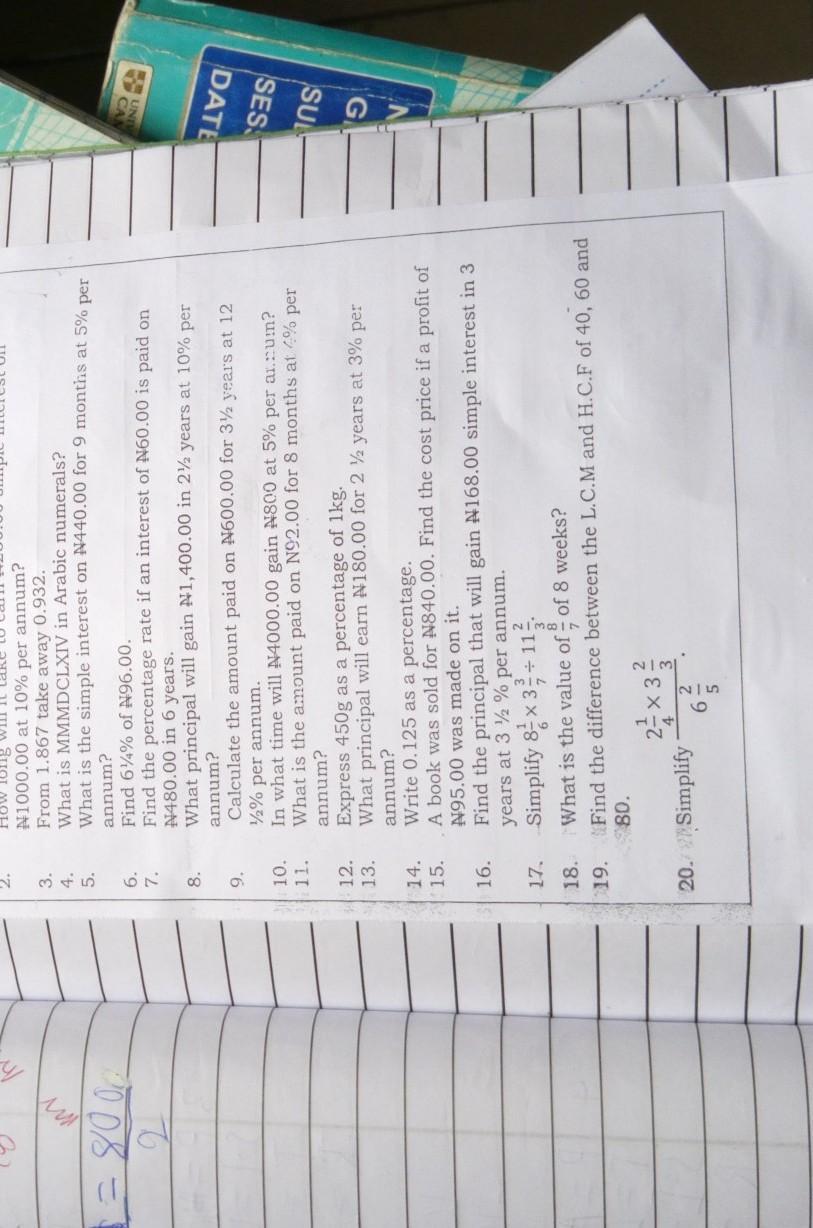 2. How long will it take to earn
₦1000.00 at 10% per annum?
3. From 1.867 take away 0.932.
4. What is MMMDCLXIV in Arabic numerals?
5. What is the simple interest on ₦440.00 for 9 months at 5% per
annum?
6. Find 6¼% of ₦96.00.
7. Find the percentage rate if an interest of ₦60.00 is paid on
₦480.00 in 6 years.
8. What principal will gain ₦1,400.00 in 2½ years at 10% per
annum?
9. Calculate the amount paid on ₦600.00 for 3½ years at 12
½% per annum.
10. In what time will ₦4000.00 gain ₦800 at 5% per annum?
11. What is the amount paid on N92.00 for 8 months at % per
annum?
12. Express 450g as a percentage of 1kg.
13. What principal will earn ₦180.00 for 2 ½ years at 3% per
annum?
14. Write 0.125 as a percentage.
15. A book was sold for ₦840.00. Find the cost price if a profit of
₦95.00 was made on it.
16. Find the principal that will gain ₦168.00 simple interest in 3
years at 3 ½ % per annum.
17. Simplify 8 1/6 x 3 3/7 ÷ 11 2/3.
18. What is the value of 8/7 of 8 weeks?
19. Find the difference between the L.C.M and H.C.F of 40, 60 and
80.
2 1/4 x 3 2/3
20. Simplify
6 2/5 .
= 8000
2
UNI
CA
N
G
SU
SES
DATE